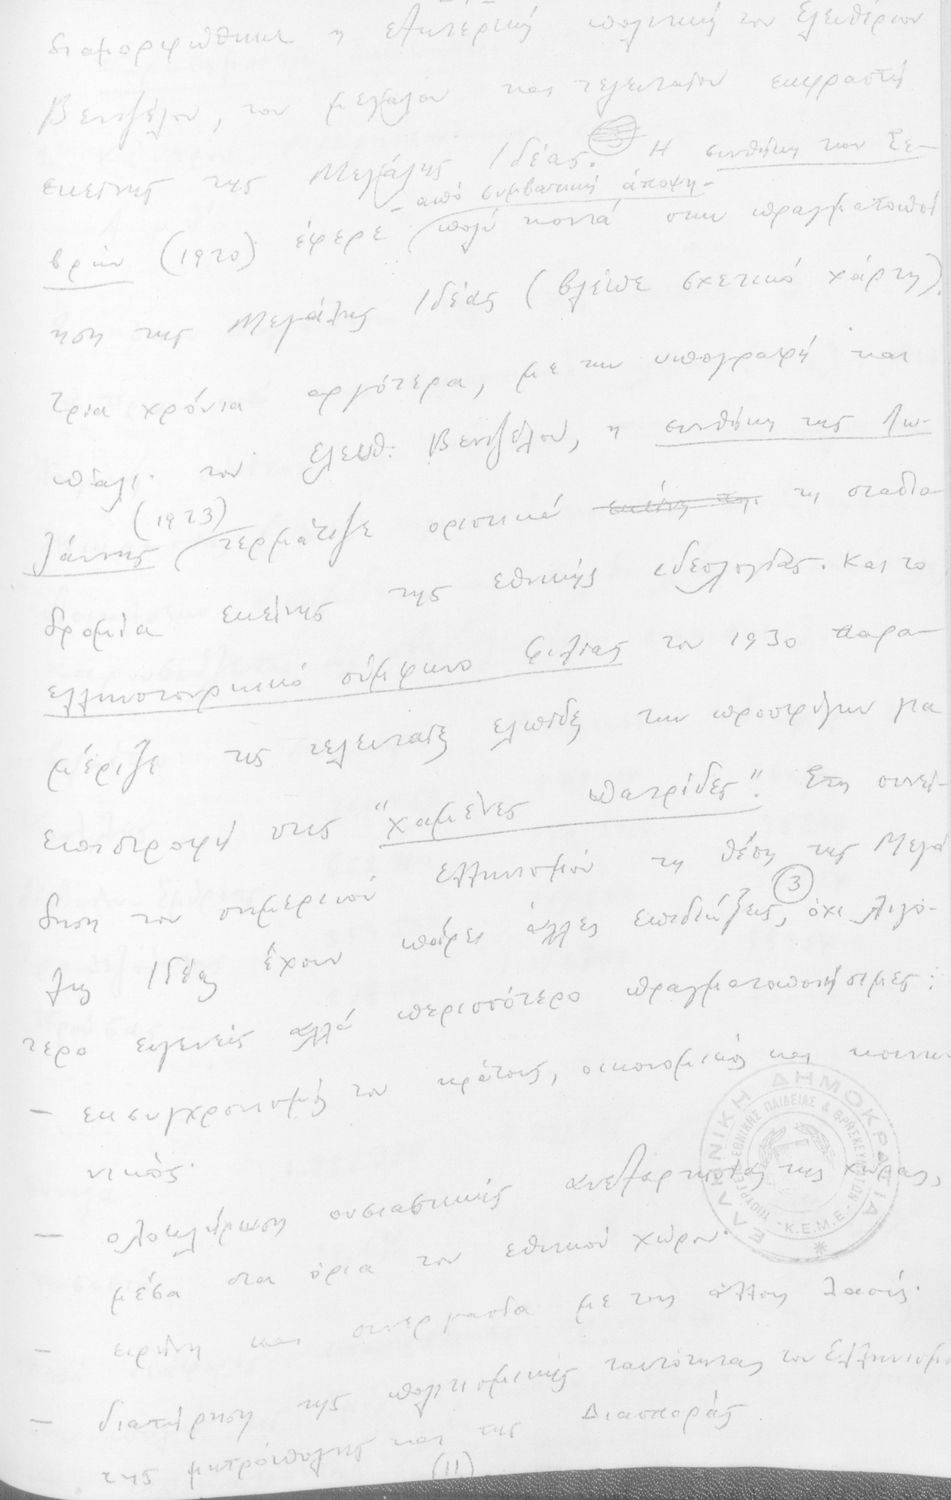 διαμορφώθηκε η εξωτερική πολιτική του Ελευθέριου
Βενιζέλου, του μεγάλου και τελευταίου εκφραστή
εκείνης της Μεγάλης Ιδέας. Η συνθήκη των Σε-
- από συμβατική άποψη -
βρών (1920) έφερε πολύ κοντά στην πραγματοποί
ηση της Μεγάλης Ιδέας (βλέπε σχετικό χάρτη).
Τρία χρόνια αργότερα, με την υπογραφή και
πάλι του Ελευθ. Βενιζέλου, η συνθήκη της Λω-
(1923)
ζάννης τερμάτιζε οριστικά τη σταδιο-
δρομία εκείνης της εθνικής ιδεολογίας. Και το
ελληνοτουρκικό σύμφωνο φιλίας του 1930 παρα-
μέριζε τις τελευταίες ελπίδες των προσφύγων για
επιστροφή στις "χαμένες πατρίδες". Στη συνεί-
δηση του σημερινού ελληνισμού τη θέση της Μεγά
λης Ιδέας έχουν πάρει άλλες επιδιώξεις, (3) όχι λιγό-
τερο ευγενείς αλλά περισσότερο πραγματοποιήσιμες:
- εκσυγχρονισμός του κράτους, οικονομικός και κοινω
νικός.
- ολοκλήρωση ουσιαστικής ανεξαρτησίας της χώρας,
μέσα στα όρια του εθνικού χώρου.
- ειρήνη και συνεργασία με τους άλλους λαούς.
- διατήρηση της πολιτισμικής ταυτότητας του Ελληνισμού
της μητρόπολης και της Διασποράς
(11)
ΕΛΛΗΝΙΚΗ ΔΗΜΟΚΡΑΤΙΑ
ΥΠΟΥΡΓΕΙΟ ΕΘΝΙΚΗΣ ΠΑΙΔΕΙΑΣ & ΘΡΗΣΚΕΥΜΑΤΩΝ
- Κ.Ε.Μ.Ε. -